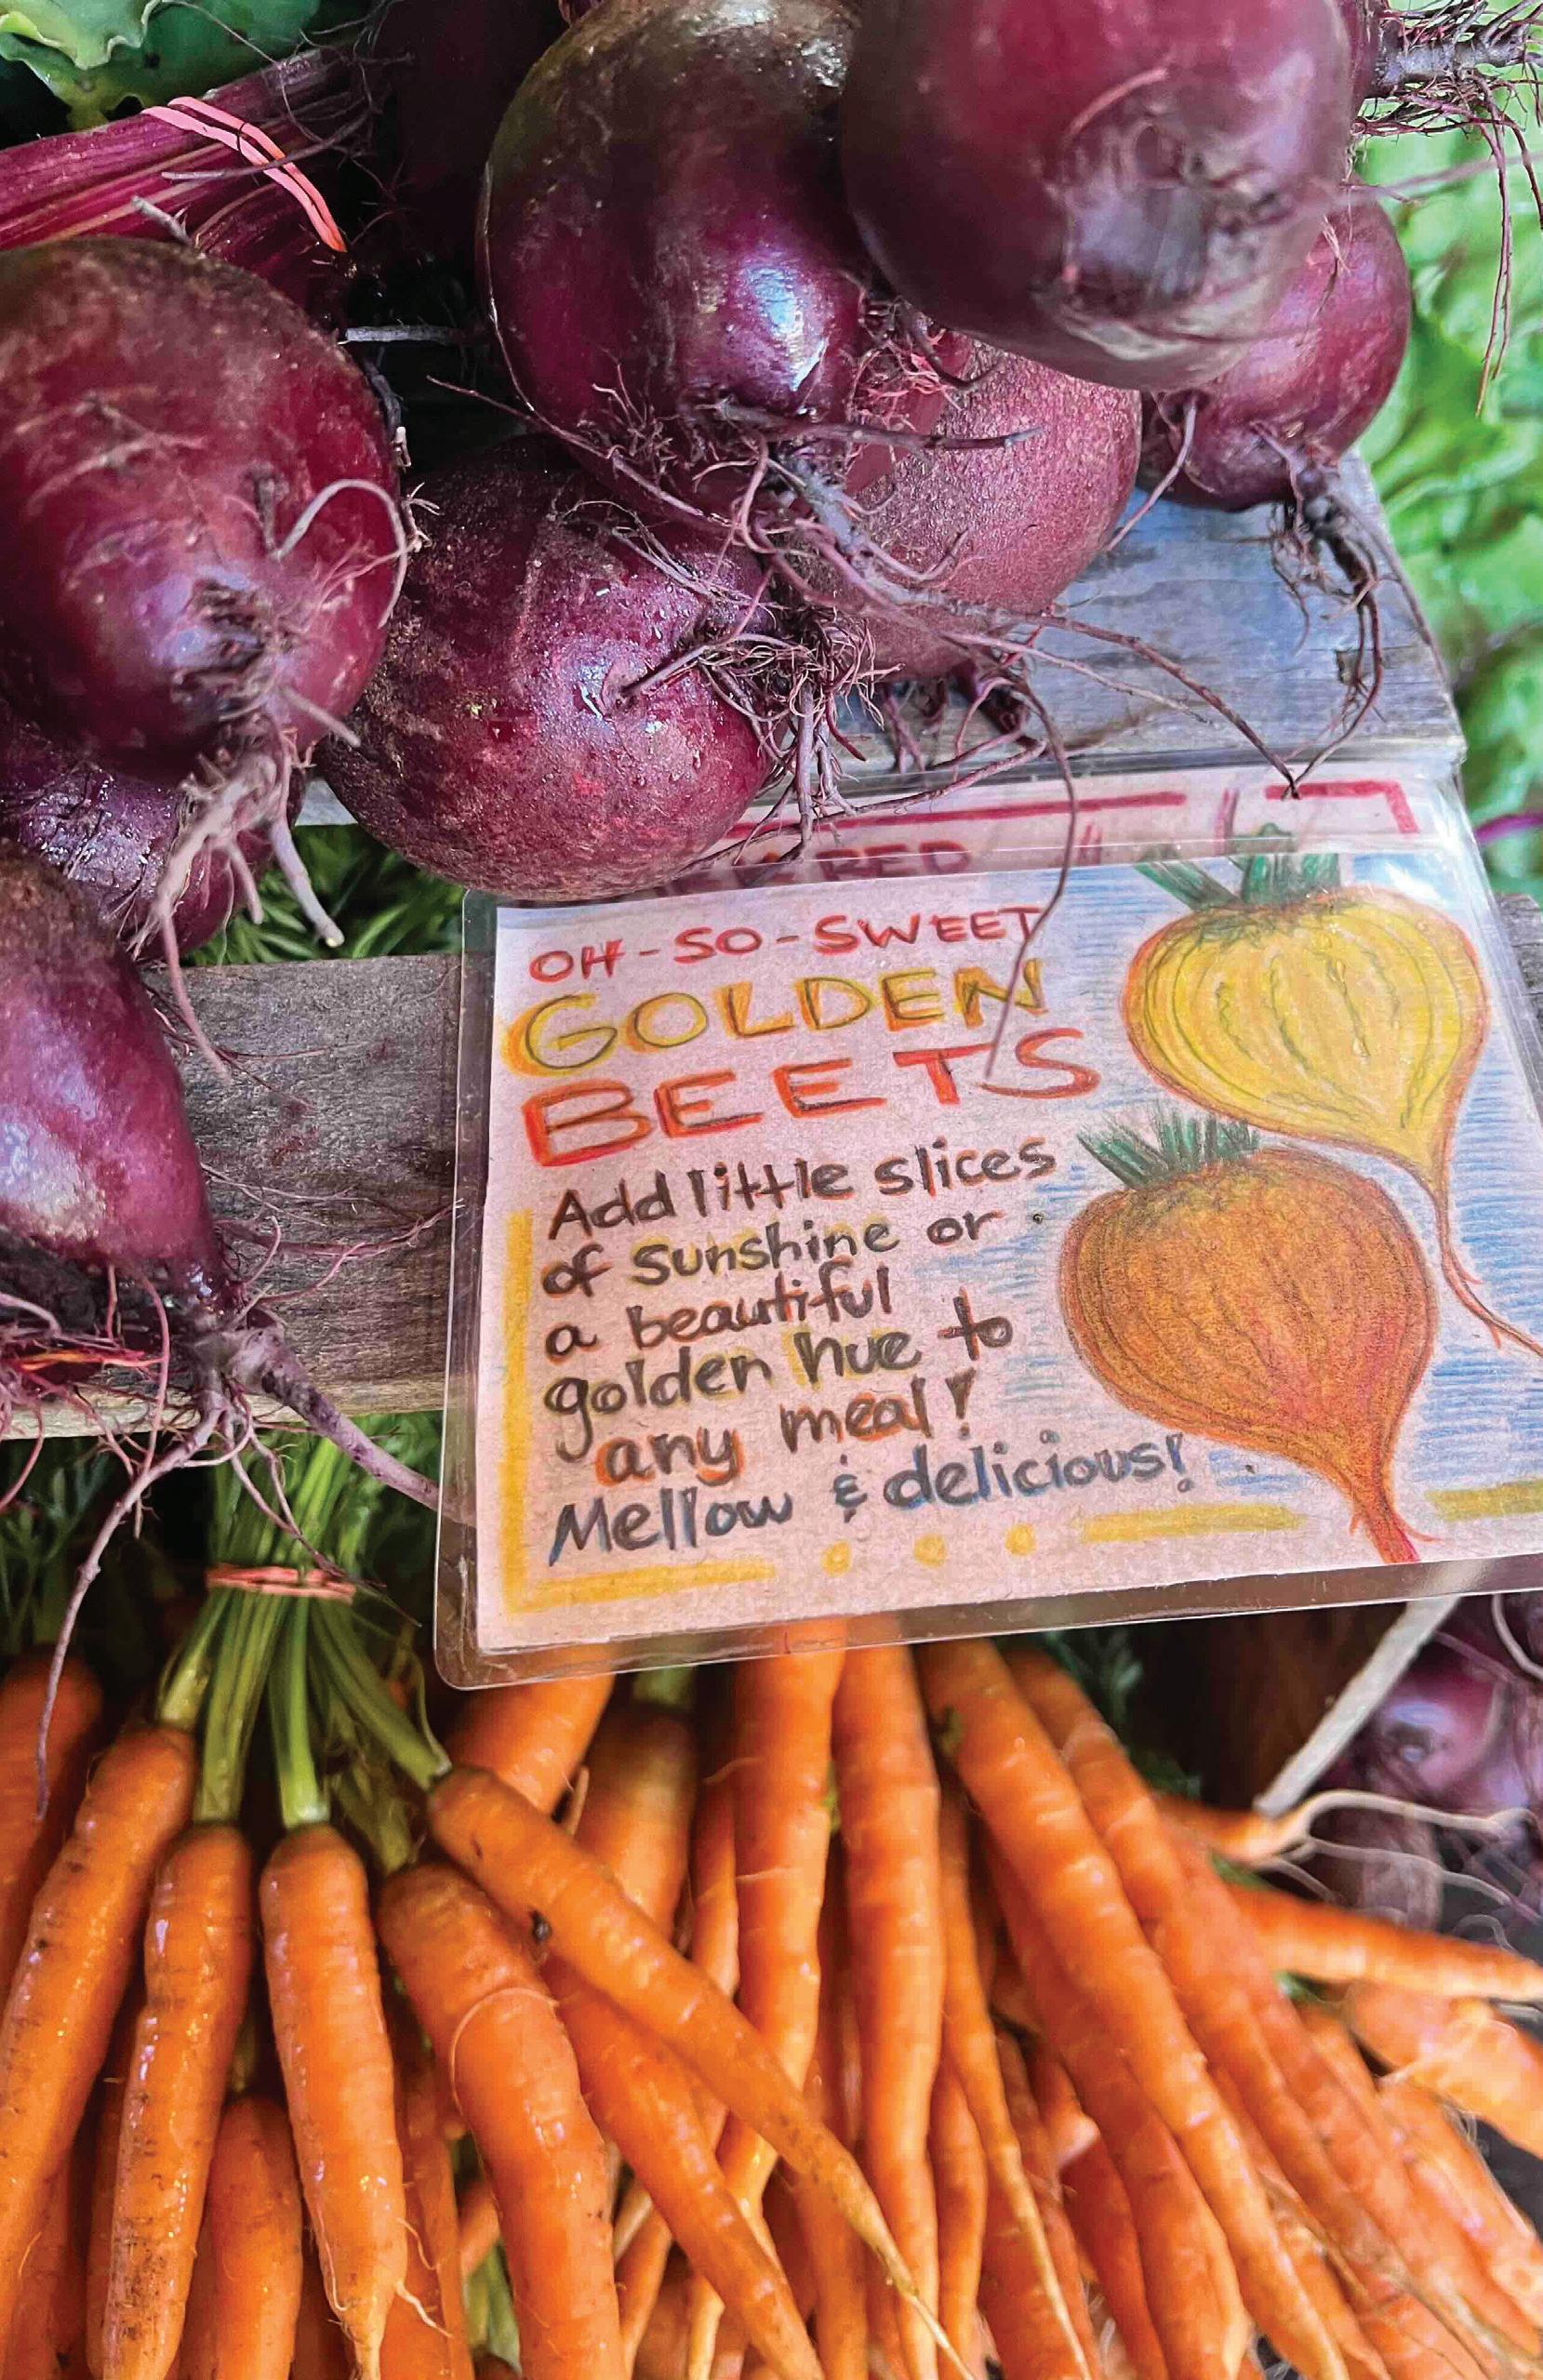 RED
OH-SO-SWEET
GOLDEN
BEETS
Add little slices
of sunshine or
a beautiful
golden hue to
any meal!
Mellow & delicious!